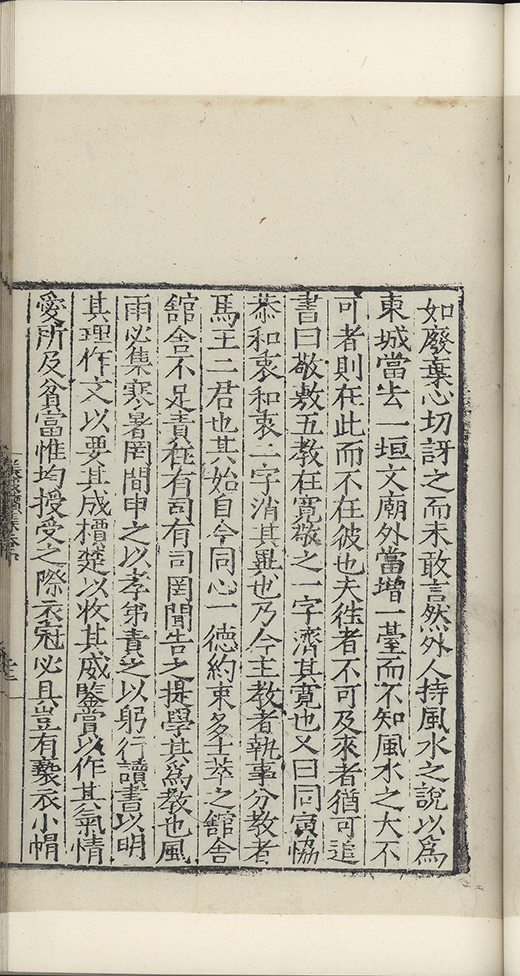 如廢棄心切訝之而未敢言然外人持風水之說以爲
東城當去一垣文廟外當增一臺而不知風水之大不
可者則在此而不在彼也夫徃者不可及來者猶可追
書曰敬敷五教在寛敬之一字濟其寛也又曰同寅恊
恭和衷和衷二字消其異也乃今主教者執事分教者
馬王二君也其始自今同心一德約束多士萃之舘舍
舘舍不足責在有司有司罔聞告之提學其爲教也風
雨必集寒暑罔間申之以孝弟責之以躬行讀書以明
其理作文以要其成檟楚以收其威鑒賞以作其氣情
愛所及貧富惟均授受之際衣冠必具豈有褻衣小帽